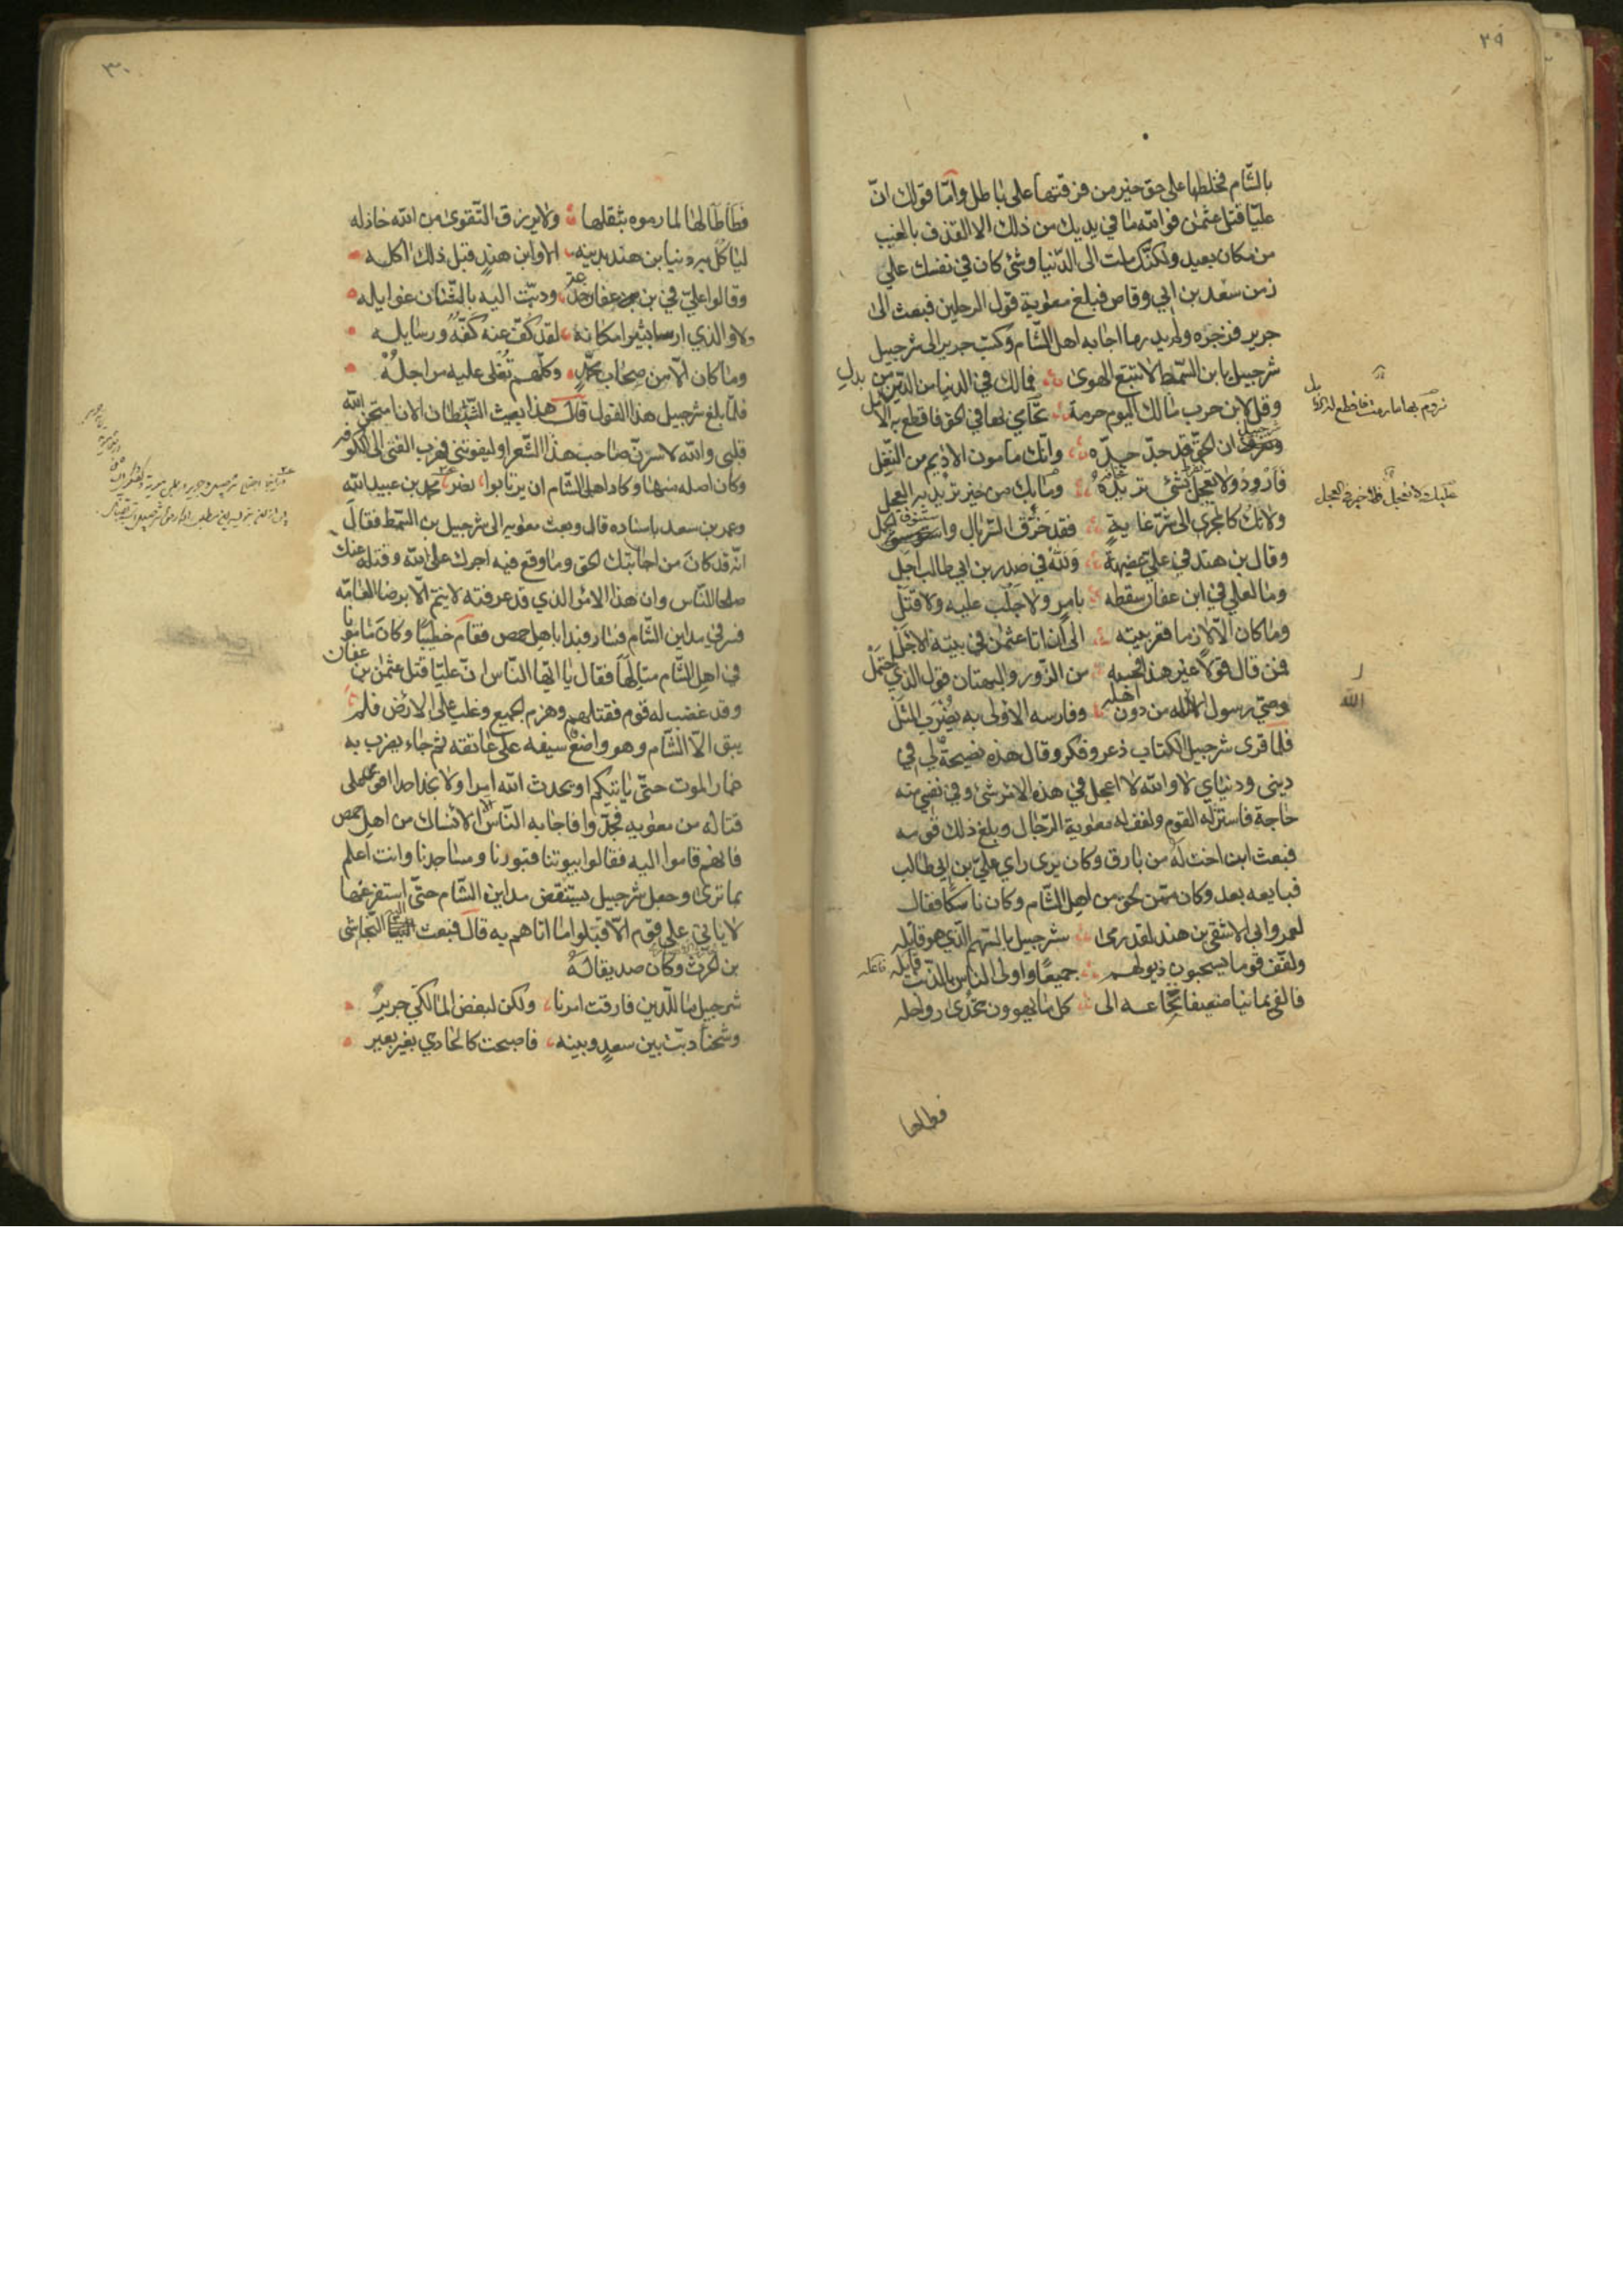 ٢٩
بالشّام فخلطها على حق خير من فرقتها على باطل وامّا قولك انّ
عليّا قتل عثمن فو الله ما في يديك من ذلك الا القذف بالغيب
من مكان بعيد ولكنّك ملت الى الدّنيا وشئ كان في نفسك علي
زمن سعد بن ابي وقاص فبلغ معوية قول الرجلين فبعث الى
جرير فزجره ولم يدر ما اجابه اهل الشّام وكتب جرير الى شرجبيل
شرجبيل يا بن السّمط لا تتبع الهوى فمالك في الدنيا من الدّين من بدل
وقل لابن حرب مالك اليوم حرمة
ان الحق قد جدّ جدّه وانّك مامون الاديم من النّغل
فارود ولا
ولا تك كالمجرى الى شرّ غاية فقد خرّق السّربال واستنوق الجمل
وقال بن هند في عليّ عضيهة وللّه في صدر بن ابي طالب اجل
وما لعلي في ابن عفان سقطه بامر ولا جلب عليه ولا قتل
وما كان الّا لازما قعر بيته الى ان اتا عثمن في بيته الاجل
فمن قال قولا غير هذا فحسبه من الزّور والبهتان قول الذي احتمل
وصيّ رسول الله من دون اهله وفارسه الاولى به يضرب المثل
فلما قرى شرجبيل الكتاب ذعر وفكر وقال هذه نصيحة لي في
ديني ودنياي لا والله لا اعجل في هذه الامر شئ وفي نفسي منه
حاجة فاستزله القوم ولفف له معوية الرّجال وبلغ ذلك قومه
فبعث ابن اخت له من بارق وكان يرى راي عليّ بن ابي طالب
فبايعه بعد وكان ممّن لحق من اهل الشّام وكان ناسكا فقال
لعمر وابي الاشقى بن هند لقد رمى شرجبيل بالسّهم الّذي هو قاتله
ولفّف قوما يسحبون ذيولهم جميعًا واولى الناس بالذّنب فاعله
فالفى يمانيا ضعيفا نخاعه الى كل ما يهوون تحدى رواحله
فطاطا
الله
٣٠
فطاطا لها لما رموه بثقلها ولا يرزق التّقوى من الله خاذله
لياكل بيرد نيا بن هند بدينه الا وابن هند قبل ذلك اكله
وقالوا عليّ في بن عفان خدعة ودبّت اليه بالشّنان غوايله
ولا والذي ارسا ثبيرا مكانه لقد كفّ عنه كفّه ورسايله
وما كان الّا من صحاب محمّد وكلّهم تغلى عليه مراجله
فلمّا بلغ شرجبيل هذا القول قال هذا بعيث الشّيطان الان امتحن الله
قلبي والله لاسرنّ صاحب هذا الشّعر او ليفوتني فهرب الفتى الى الكوفه
وكان اصله منها وكاد اهل الشّام ان يرتابوا نصر عن محمد بن عبيد الله
وعمر بن سعد باسناده قال وبعث معويه الى شرجبيل بن السّمط فقال
انّه قد كان من اجابتك الحق وما وقع فيه اجرك على الله وقبله عنك
صلحا النّاس وان هذا الامر الذي قد عرفته لا يتم الّا برضا العامّه
فسر في مداين الشّام فسار فبدا باهل حمص فقام خطيبا وكان مامونا
في اهل الشّام متالّها فقال يا ايّها النّاس انّ عليّا قتل عثمن بن عفان
وقد غضب له قوم فقتلهم وهزم الجميع وغلب على الارض فلم
يبق الّا الشّام وهو واضع سيفه على عاتقه ثم جاء يضرب به
غمار الموت حتّى ياتيكم او يحدث الله امرا ولا نجد احدا اقوى على
قتاله من معويه فجدّوا فاجابه النّاس الا نساك من اهل حمص
فانهم قاموا اليه فقالوا بيوتنا قبورنا ومساجدنا وانت اعلم
بما ترى وجعل شرجبيل يستنقض مداين الشّام حتّى استفرغها
لا ياتي على قوم الّا قبلوا ما اتاهم به قال فبعث اليه النّجاشى
بن الحرث وكان صديقا له
شرجبيل ما للدّين فارقت امرنا ولكن لبغض المالكيّ جرير
وشحنا دبّت بين سعد وبينه فاصبحت كالحادي بغير بعير